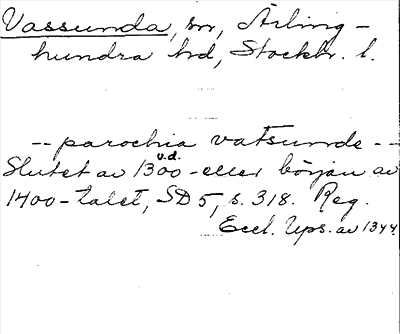 Vassunda, sn, Ärling-
hundra hd, Stockh. l.
-- parochia vatsunde --
Slutet av 1300-eller början av
v.d.
1400-talet, SD 5, s. 318. Reg.
Eccl. Ups. av 1344